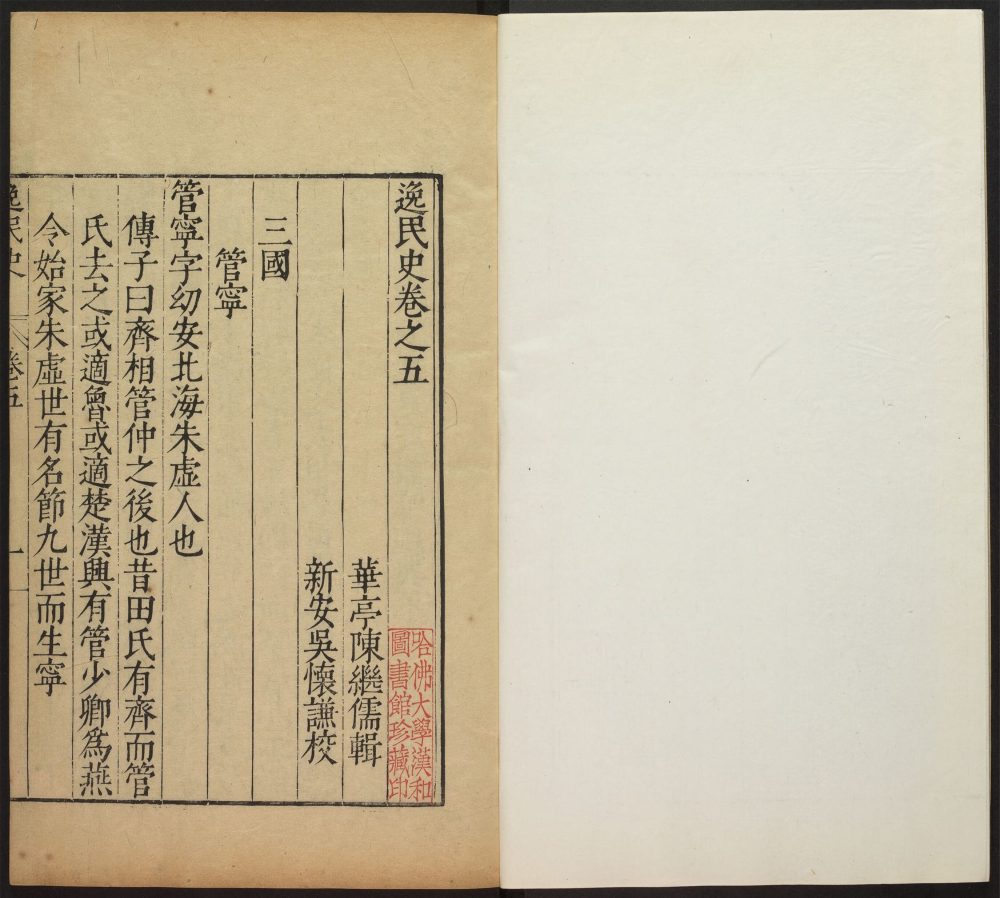 逸民史卷之五
哈佛大學漢和
圖書館珍藏印
華亭陳繼儒輯
新安吳懷謙校
三國
管寧
管寧字幼安北海朱虛人也
傳子曰齊相管仲之後也昔田氏有齊而管
氏去之或適魯或適楚漢興有管少卿為燕
令始家朱虛世有名節九世而生寧
逸民史 卷五 一